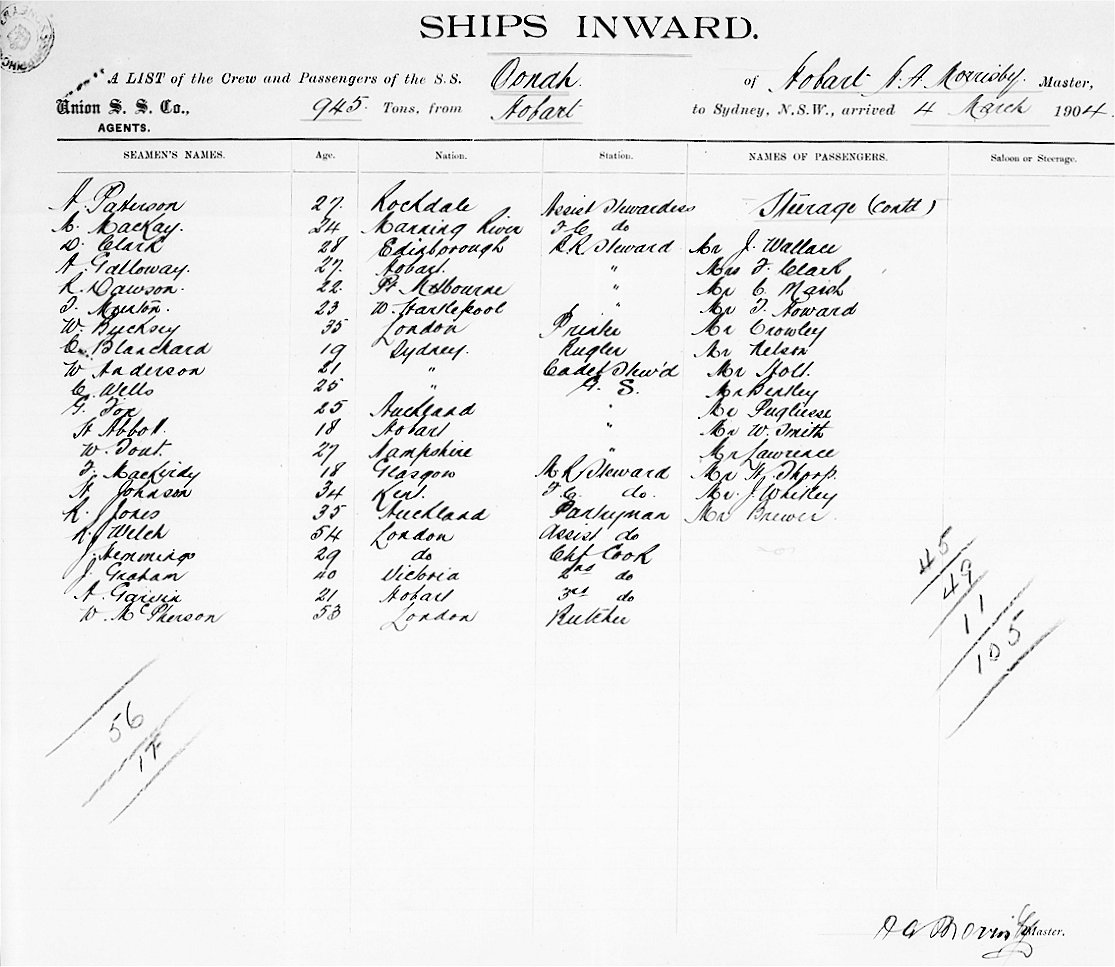 SHIPS INWARD.
A LIST of the Crew and Passengers of the S.S. Oonah. of Hobart A. A. Morrisby, Master,
Union S. S. Co., 945. Tons, from Hobart to Sydney, N.S.W., arrived 4 March 1904.
AGENTS.
SEAMEN'S NAMES. Age. Nation. Station. NAMES OF PASSENGERS. Saloon or Steerage.
A. Paterson 27. Rockdale Assist Stewardess Steerage (contd)
M. MacKay. 24 Manning River F. C. do
D. Clark 28 Edinborough S.R. Steward Mr J. Wallace
A. Galloway. 27. Hobart. " Mrs F. Clark
R. Dawson. 22 Pt Melbourne " Mr C. Marsh
T. Menton. 23 W. Hartlepool " Mr T. Howard
W. 35 London Printer Mr Crowley
C. Blanchard 19 Sydney. Bugler Mr Nelson
W Anderson 21 " Cadet Stew'd Mr Holt.
C. Wells 25 " G. S. Mr Bentley
G. Fox 25 Auckland " Mr Pugliese
H Abbot. 18 Hobart " Mr W. Smith
W. Tout. 27 Hampshire " Mr Lawrence
F. MacKirdy 18 Glasgow M R Steward Mr H. Thorp.
H Johnson 34 Kent. F. C. do. Mr. J. Whitley
R. Jones 35 Auckland Pantryman Mr Brewer
R. Welch 54 London Assist do
J. Hemmings 29 do Chf Cook
J. Graham 40 Victoria 2nd do
A. Garvin 21 Hobart 3rd do
W. McPherson 53 London Butcher
45
49
11
105
56
17
A A Morrisby Master.